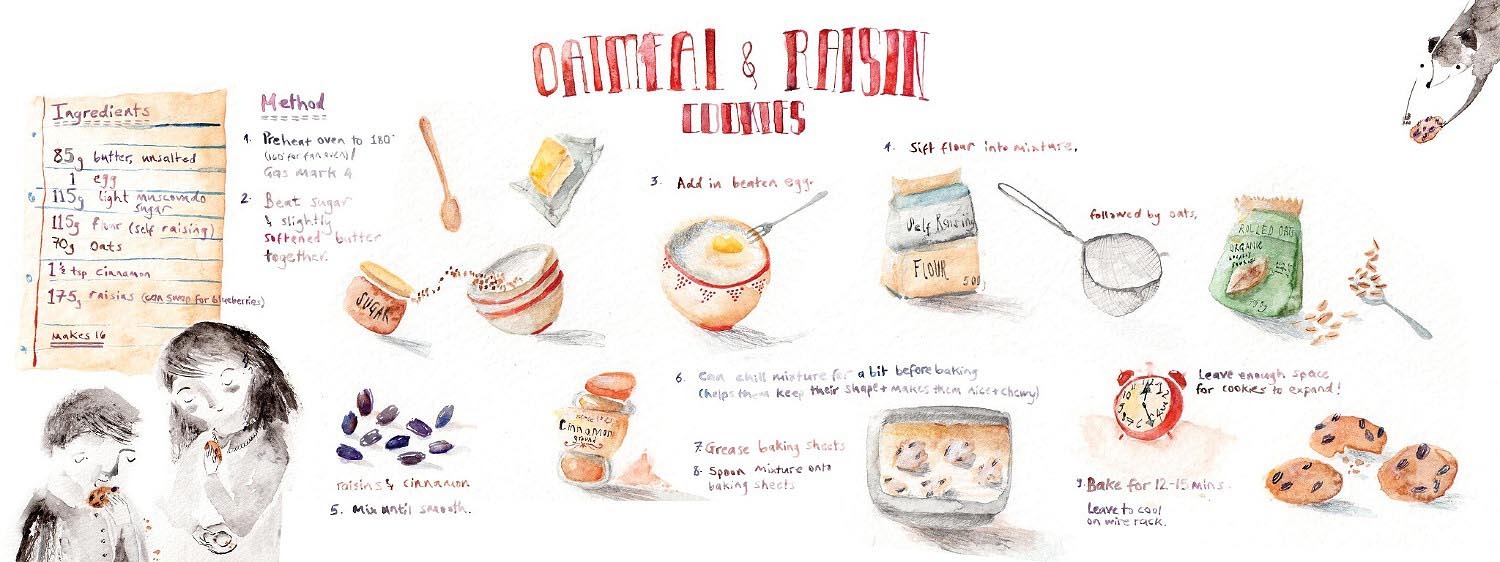 OATMEAL & RAISIN
COOKIES
Ingredients
85g butter, unsalted
1 egg
115g light muscovado
sugar
115g flour (self raising)
70g oats
1½ tsp cinnamon
175g raisins (can swap for blueberries)
Makes 16
Method
1. Preheat oven to 180°
(160° for fan oven)/
Gas Mark 4
2. Beat sugar
& slightly
softened butter
together.
SUGAR
3. Add in beaten egg.
4. Sift flour into mixture,
Self Raising
FLOUR
500g
followed by oats,
ROLLED OATS
ORGANIC
raisins & cinnamon
5. Mix until smooth.
Cinnamon
ground
6. Can chill mixture for a bit before baking
(helps them keep their shape + makes them nice + chewy)
7. Grease baking sheets
8. Spoon mixture onto
baking sheets
Leave enough space
for cookies to expand!
9. Bake for 12-15 mins.
Leave to cool
on wire rack.